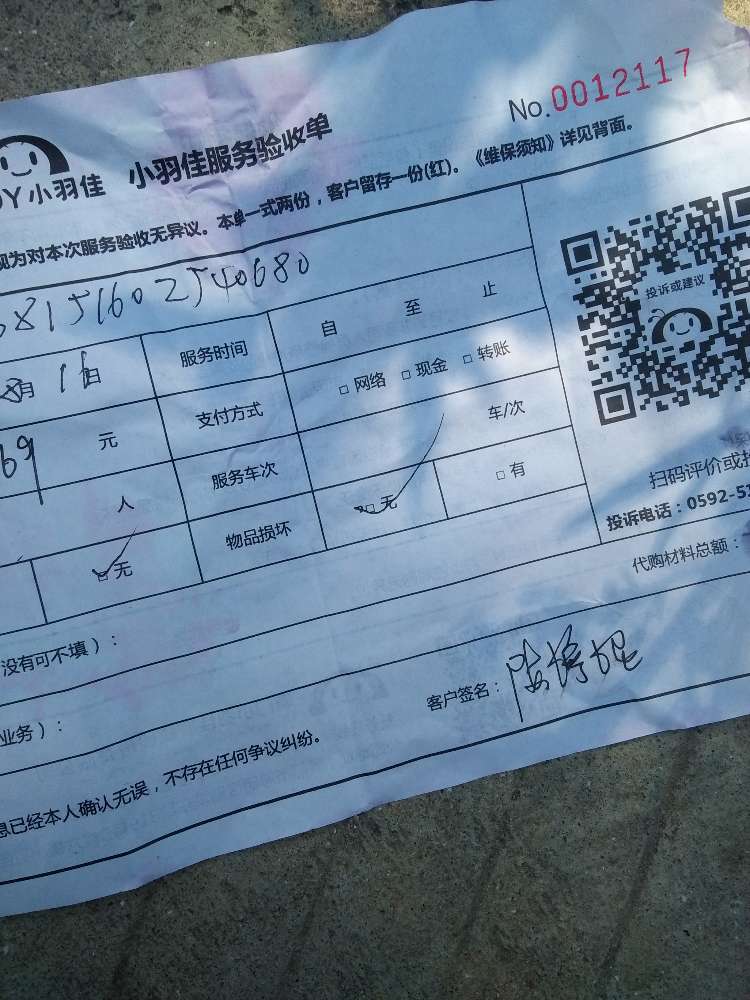 No.0012117
小羽佳 小羽佳服务验收单
视为对本次服务验收无异议。本单一式两份，客户留存一份(红)。《维保须知》详见背面。
8151602540680
8月 11日 服务时间 自 至 止
69 元 支付方式 □网络 □现金 □转账
人 服务车次 车/次
□无 物品损坏 □无 □有
投诉或建议
扫码评价或投
投诉电话：0592-5
没有可不填）：
代购材料总额：
业务）：
客户签名：
息已经本人确认无误，不存在任何争议纠纷。